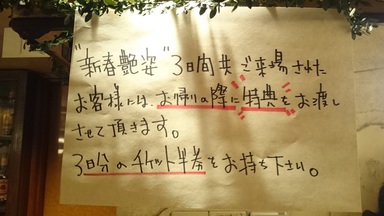 "新春艶姿"3日間共ご来場された
お客様には、お帰りの際に特典をお渡し
させて頂きます。
3日分のチケット半券をお持ち下さい。